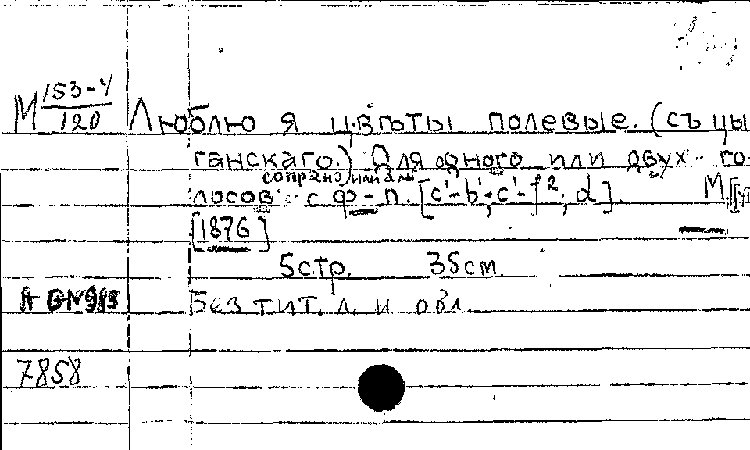 М 153-4/120 Люблю я цвѣты полевые. (съ цы
ганскаго.) Для одного или двух го-
сопрано, или
лосов с ф-п. [c'-b'; c'-f²; d]. М.
[1876]
5стр. 35см.
Без тит. л. и обл.
7858